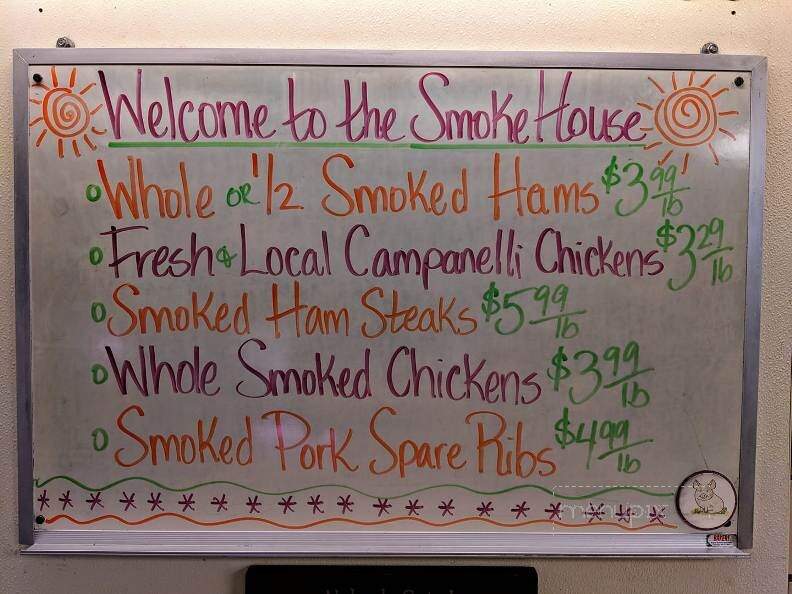 Welcome to the SmokeHouse
Whole OR 1/2 Smoked Hams $3.99/lb
Fresh & Local Campanelli Chickens $3.29/lb
Smoked Ham Steaks $5.99/lb
Whole Smoked Chickens $3.99/lb
Smoked Pork Spare Ribs $4.99/lb
menupix